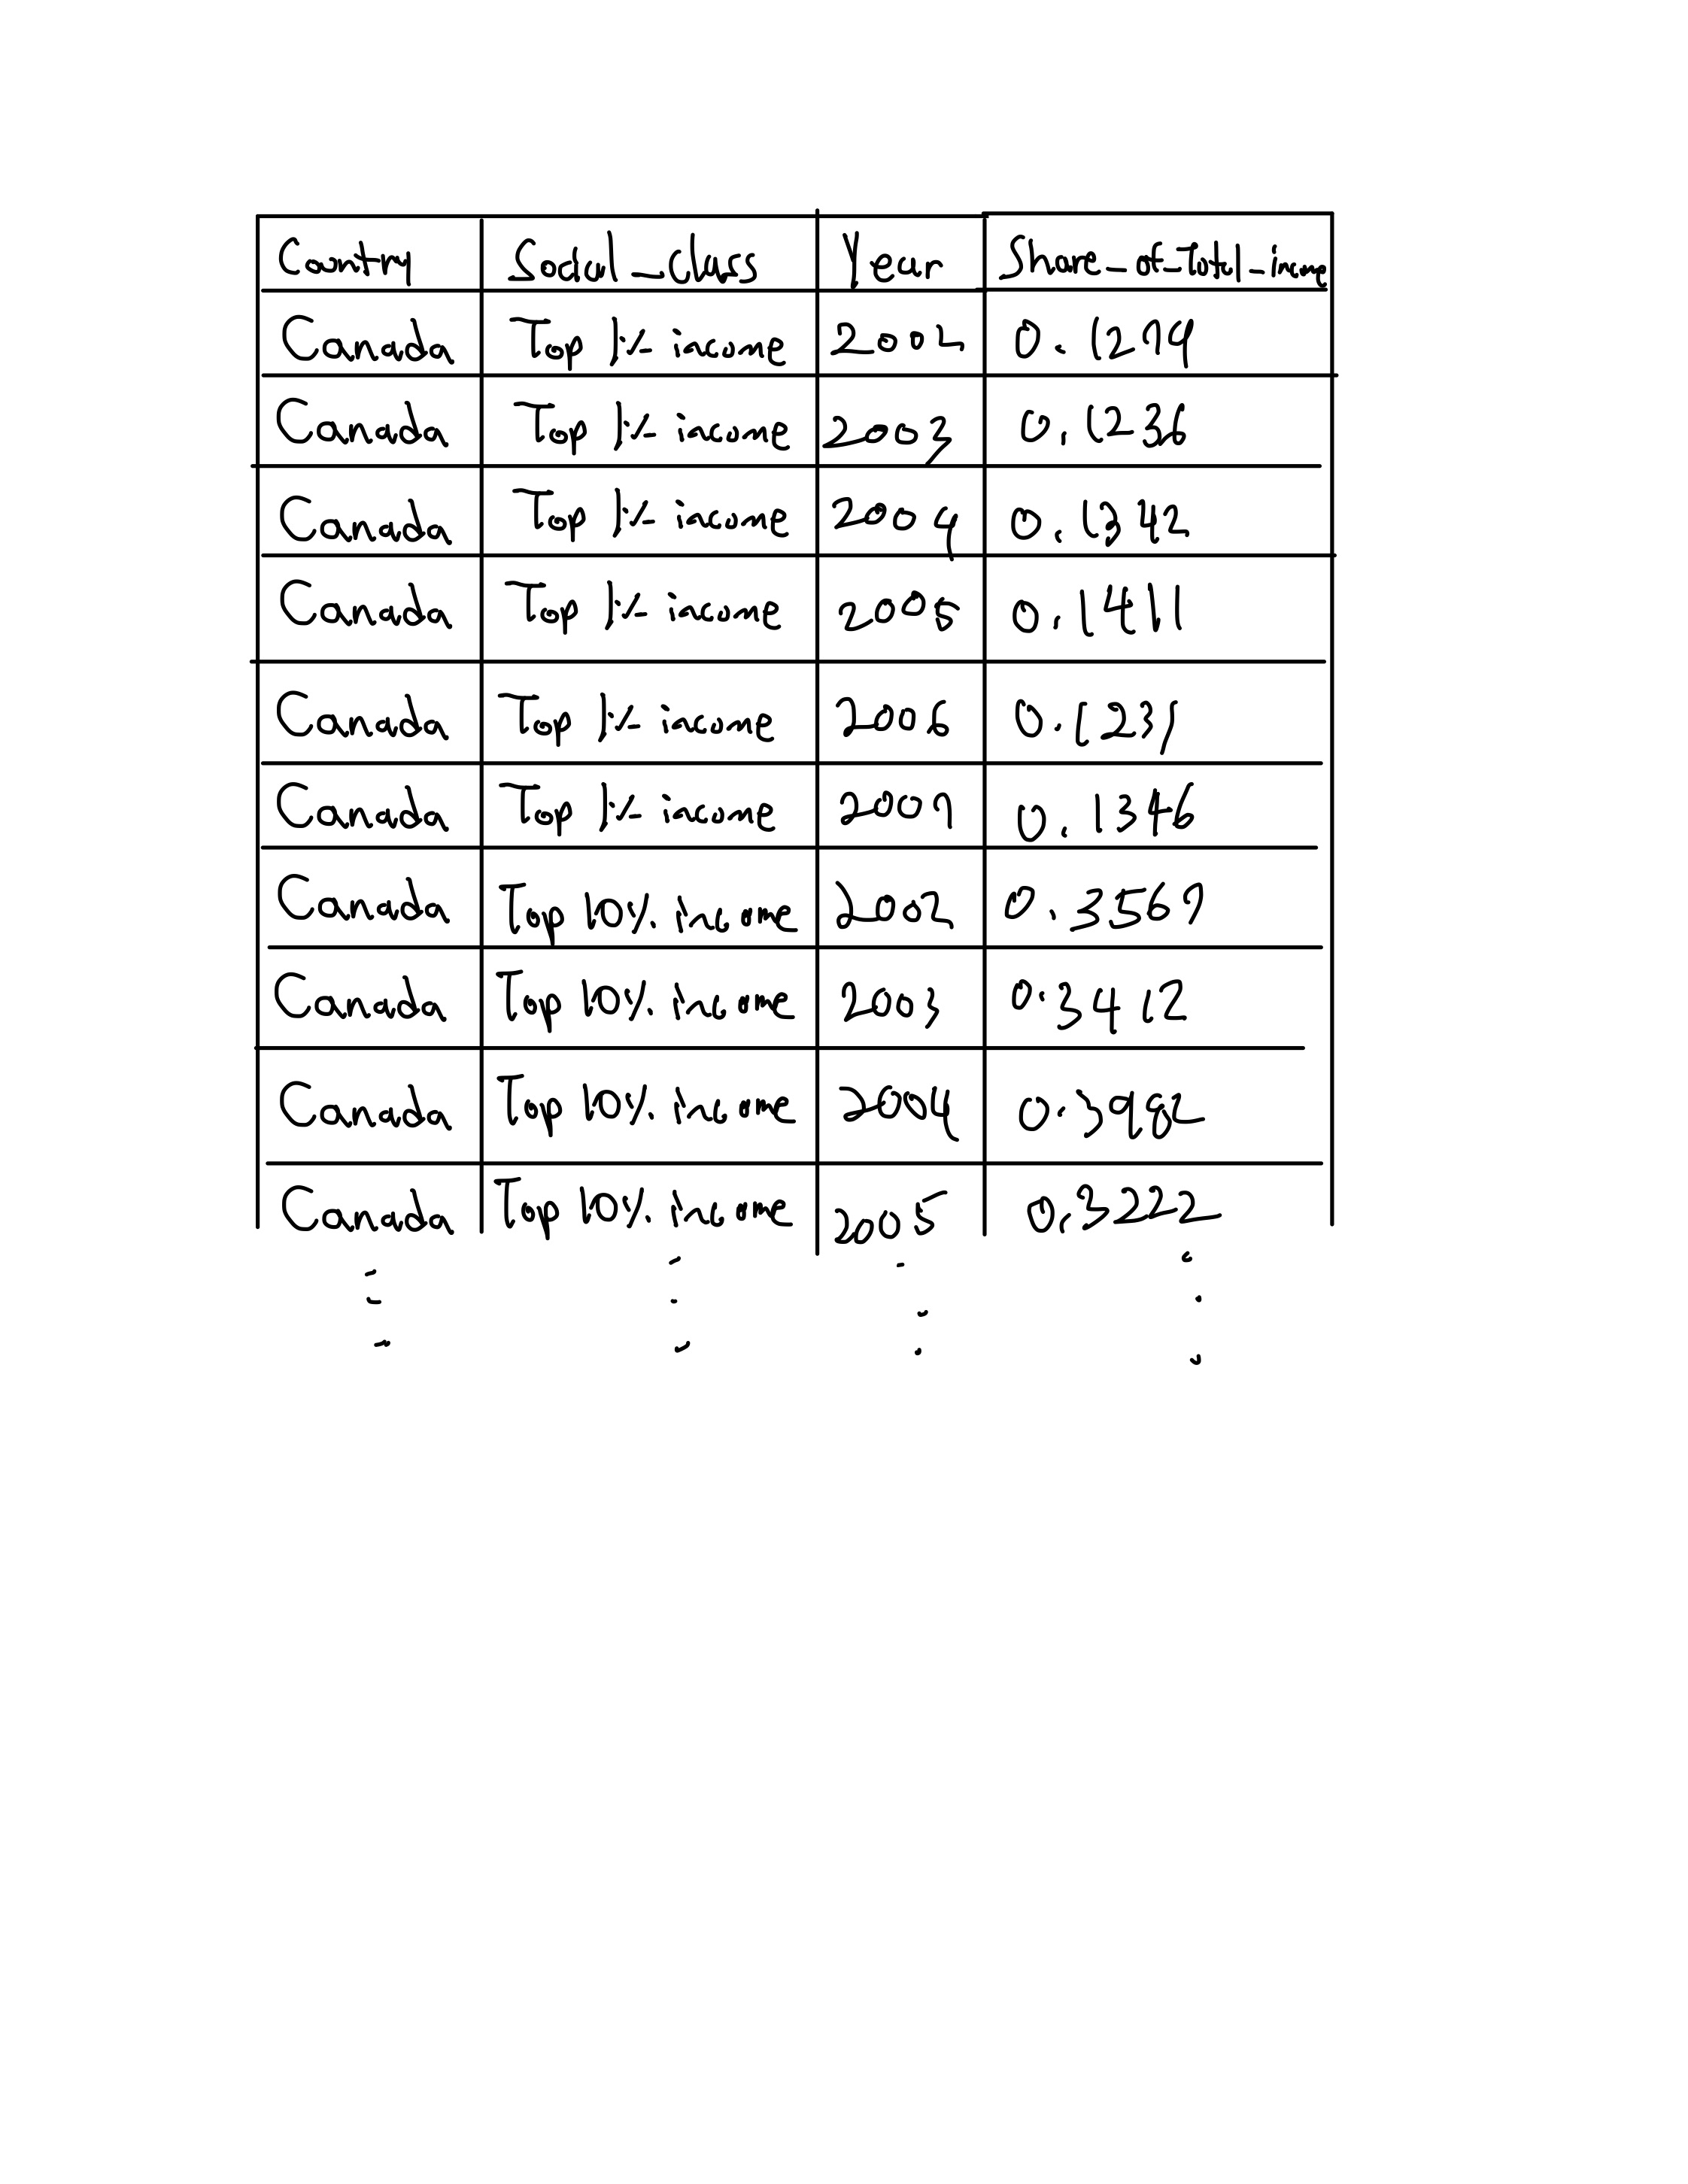 Country Social_Class Year Share_of_Total_income
Canada Top 1% income 2002 0.1299
Canada Top 1% income 2003 0.1236
Canada Top 1% income 2004 0.1342
Canada Top 1% income 2005 0.1411
Canada Top 1% income 2006 0.1231
Canada Top 1% income 2007 0.1346
Canada Top 10% income 2002 0.3567
Canada Top 10% income 2003 0.3412
Canada Top 10% income 2004 0.3982
Canada Top 10% income 2005 0.3222